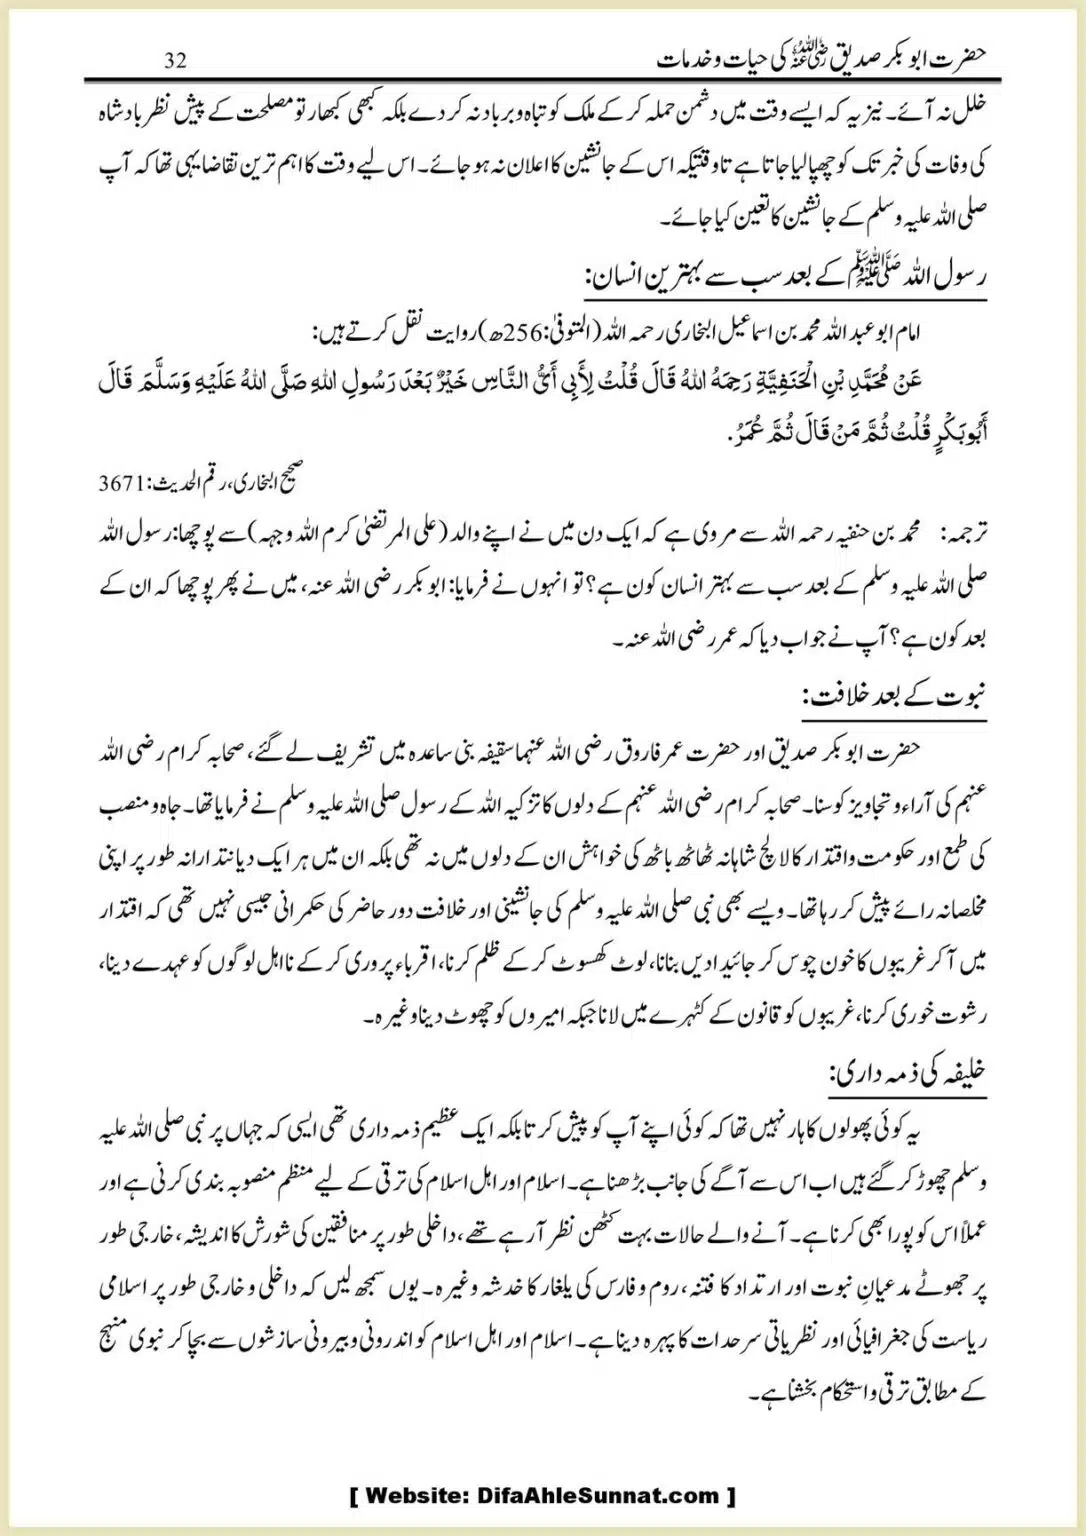 حضرت ابو بکر صدیق رضی اللہ عنہ کی حیات و خدمات
32
خلل نہ آئے۔ نیز یہ کہ ایسے وقت میں دشمن حملہ کر کے ملک کو تباہ و برباد نہ کر دے بلکہ کبھی کبھار تو مصلحت کے پیش نظر بادشاہ
کی وفات کی خبر تک کو چھپا لیا جاتا ہے تاوقتیکہ اس کے جانشین کا اعلان نہ ہو جائے۔ اس لیے وقت کا اہم ترین تقاضا یہی تھا کہ آپ
صلی اللہ علیہ وسلم کے جانشین کا تعین کیا جائے۔
رسول اللہ ﷺ کے بعد سب سے بہترین انسان:
امام ابو عبد اللہ محمد بن اسماعیل البخاری رحمہ اللہ (المتوفیٰ: 256ھ) روایت نقل کرتے ہیں:
عَنْ مُحَمَّدِ بْنِ الْحَنَفِيَّةِ رَحِمَهُ اللهُ قَالَ قُلْتُ لِأَبِي أَيُّ النَّاسِ خَيْرٌ بَعْدَ رَسُولِ اللهِ صَلَّى اللهُ عَلَيْهِ وَسَلَّمَ قَالَ
أَبُو بَكْرٍ قُلْتُ ثُمَّ مَنْ قَالَ ثُمَّ عُمَرُ.
صحیح البخاری، رقم الحدیث: 3671
ترجمہ: محمد بن حنفیہ رحمہ اللہ سے مروی ہے کہ ایک دن میں نے اپنے والد (علی المرتضیٰ کرم اللہ وجہہ) سے پوچھا: رسول اللہ
صلی اللہ علیہ وسلم کے بعد سب سے بہتر انسان کون ہے؟ تو انہوں نے فرمایا: ابو بکر رضی اللہ عنہ، میں نے پھر پوچھا کہ ان کے
بعد کون ہے؟ آپ نے جواب دیا کہ عمر رضی اللہ عنہ۔
نبوت کے بعد خلافت:
حضرت ابو بکر صدیق اور حضرت عمر فاروق رضی اللہ عنہما سقیفہ بنی ساعدہ میں تشریف لے گئے، صحابہ کرام رضی اللہ
عنہم کی آراء و تجاویز کو سنا۔ صحابہ کرام رضی اللہ عنہم کے دلوں کا تزکیہ اللہ کے رسول صلی اللہ علیہ وسلم نے فرمایا تھا۔ جاہ و منصب
کی طمع اور حکومت و اقتدار کا لالچ شاہانہ ٹھاٹھ باٹھ کی خواہش ان کے دلوں میں نہ تھی بلکہ ان میں ہر ایک دیانتدارانہ طور پر اپنی
مخلصانہ رائے پیش کر رہا تھا۔ ویسے بھی نبی صلی اللہ علیہ وسلم کی جانشینی اور خلافت دور حاضر کی حکمرانی جیسی نہیں تھی کہ اقتدار
میں آ کر غریبوں کا خون چوس کر جائیدادیں بنانا، لوٹ کھسوٹ کر کے ظلم کرنا، اقرباء پروری کر کے نااہل لوگوں کو عہدے دینا،
رشوت خوری کرنا، غریبوں کو قانون کے کٹہرے میں لانا جبکہ امیروں کو چھوٹ دینا وغیرہ۔
خلیفہ کی ذمہ داری:
یہ کوئی پھولوں کا ہار نہیں تھا کہ کوئی اپنے آپ کو پیش کرتا بلکہ ایک عظیم ذمہ داری تھی ایسی کہ جہاں پر نبی صلی اللہ علیہ
وسلم چھوڑ کر گئے ہیں اب اس سے آگے کی جانب بڑھنا ہے۔ اسلام اور اہل اسلام کی ترقی کے لیے منظم منصوبہ بندی کرنی ہے اور
عملاً اس کو پورا بھی کرنا ہے۔ آنے والے حالات بہت کٹھن نظر آ رہے تھے، داخلی طور پر منافقین کی شورش کا اندیشہ، خارجی طور
پر جھوٹے مدعیانِ نبوت اور ارتداد کا فتنہ، روم و فارس کی یلغار کا خدشہ وغیرہ۔ یوں سمجھ لیں کہ داخلی و خارجی طور پر اسلامی
ریاست کی جغرافیائی اور نظریاتی سرحدات کا پہرہ دینا ہے۔ اسلام اور اہل اسلام کو اندرونی و بیرونی سازشوں سے بچا کر نبوی منہج
کے مطابق ترقی و استحکام بخشنا ہے۔
[ Website: DifaAhleSunnat.com ]